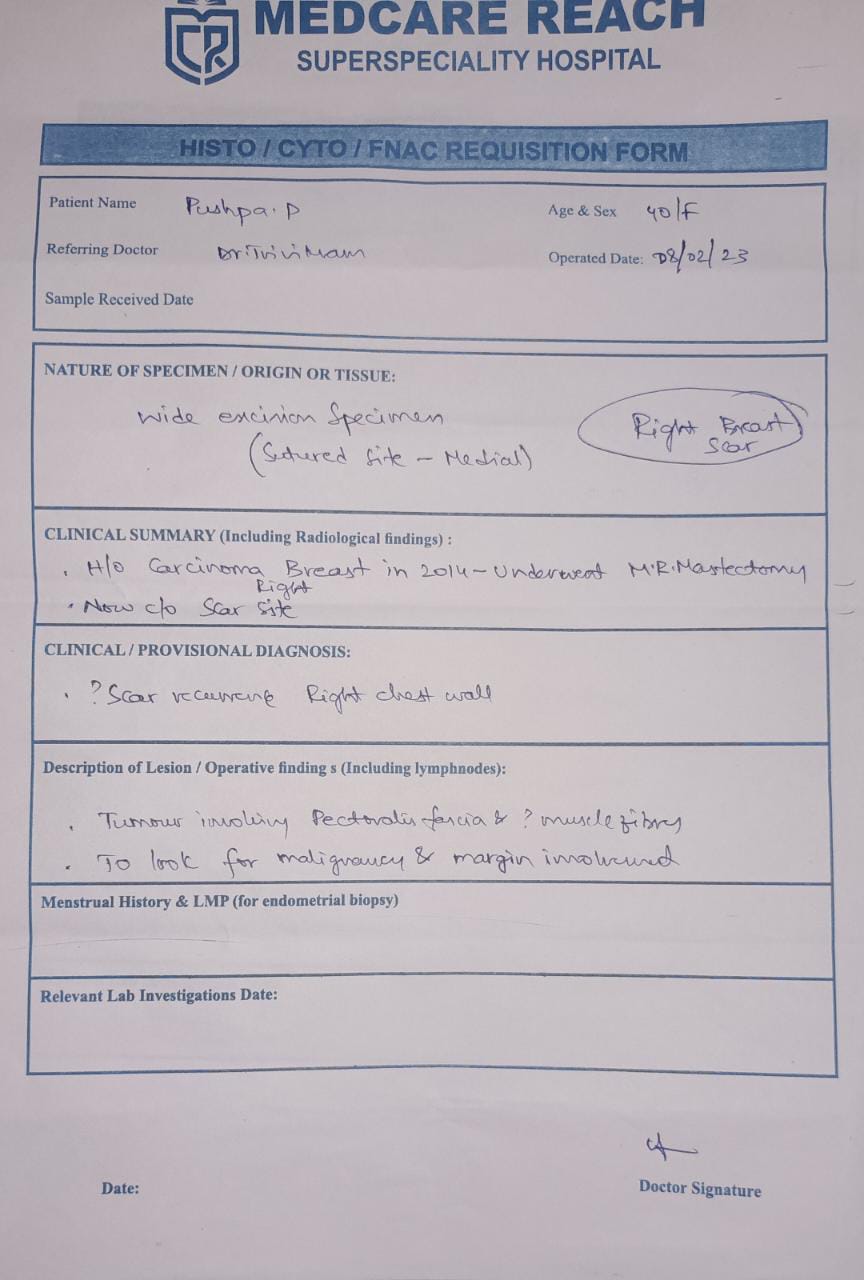 MEDCARE REACH
SUPERSPECIALITY HOSPITAL
HISTO / CYTO / FNAC REQUISITION FORM
Patient Name Pushpa. P Age & Sex 40/F
Referring Doctor Operated Date: 08/02/23
Sample Received Date
NATURE OF SPECIMEN / ORIGIN OR TISSUE:
Wide excision Specimen
(Sutured site - Medial)
Right Breast
Scar
CLINICAL SUMMARY (Including Radiological findings) :
. H/o Carcinoma Breast in 2014 - Underwent M.R.Mastectomy
Right
. Now c/o Scar site
CLINICAL / PROVISIONAL DIAGNOSIS:
. ? Scar Right chest wall
Description of Lesion / Operative finding s (Including lymphnodes):
. Tumour involving Pectoralis fascia & ? muscle fibres
. To look for malignancy & margin
Menstrual History & LMP (for endometrial biopsy)
Relevant Lab Investigations Date:
Date:
Doctor Signature